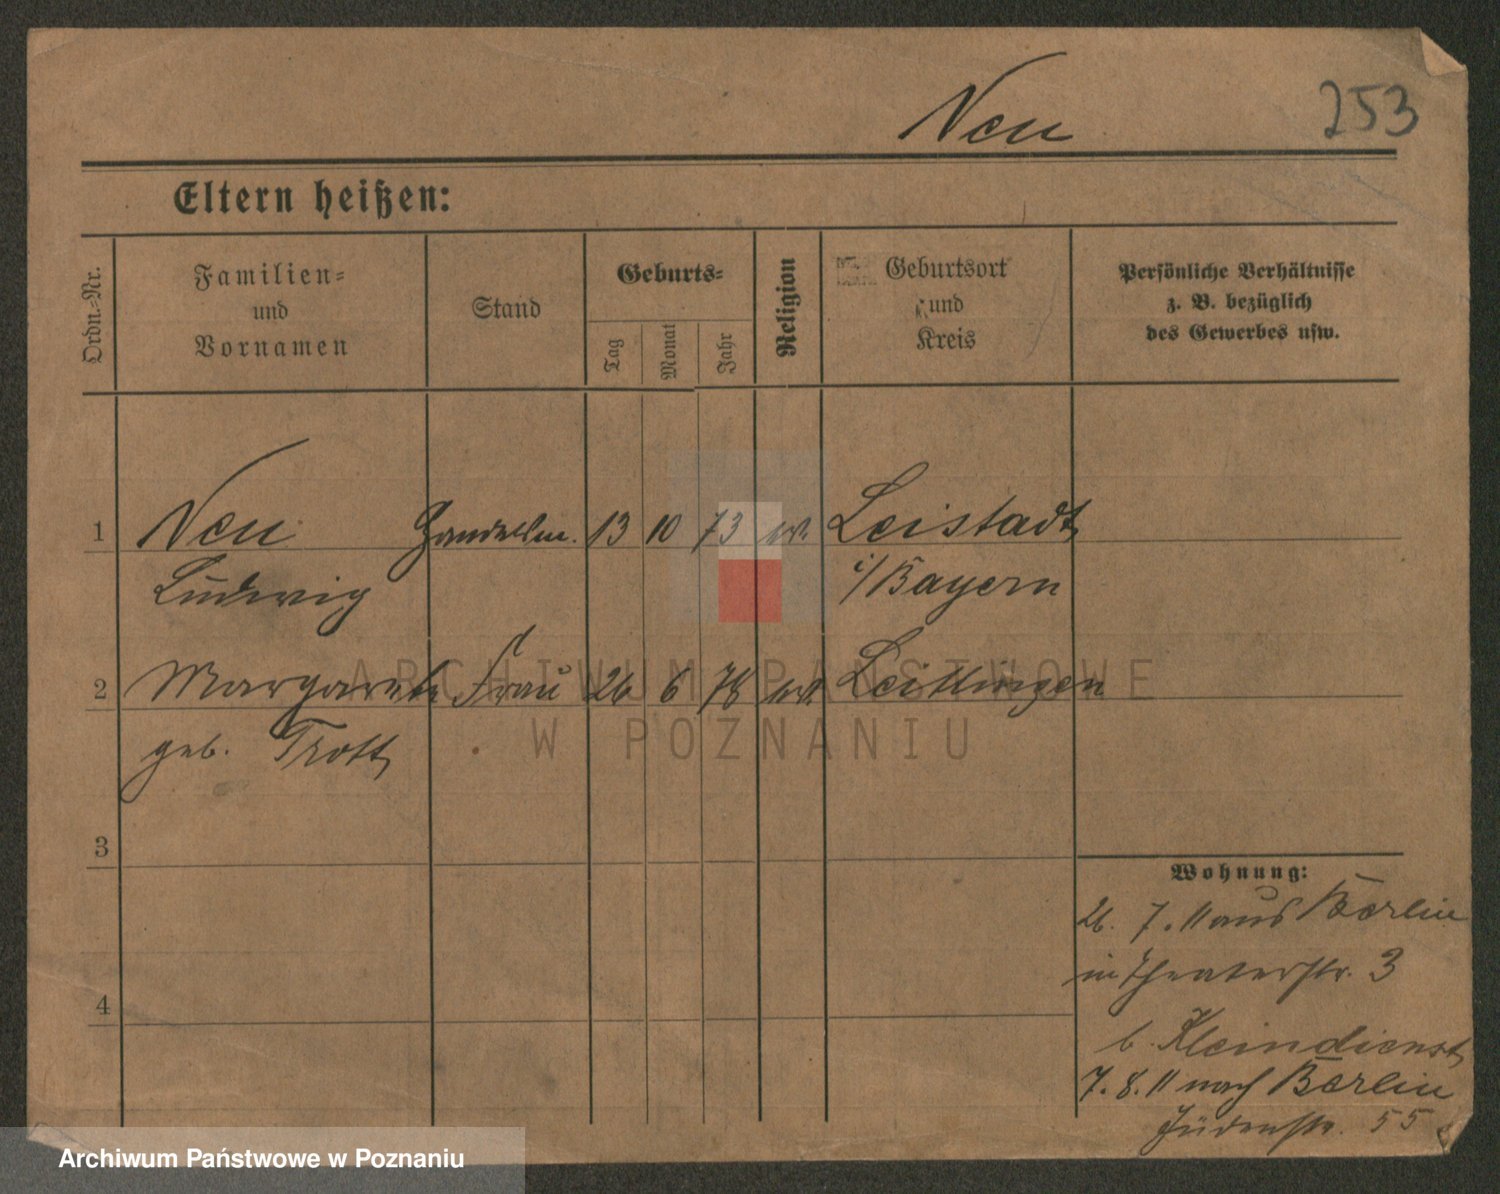 Neu
253
Eltern heißen:
Ordn.-Nr.
Familien-
und
Vornamen
Stand
Geburts-
Tag
Monat
Jahr
Religion
Geburtsort
und
Kreis
Persönliche Verhältnisse
z. B. bezüglich
des Gewerbes usw.
1 Neu Handelsm. 13 10 73 Leistadt
Ludwig i/Bayern
2 Margarete Frau 26 6 78
geb. Trott
3
4
Wohnung:
26. 7. 11 aus Berlin
in Theaterstr. 3
b. Kleindienst
7. 8. 11 nach Berlin
Jüdenstr. 55
ARCHIWUM PAŃSTWOWE
W POZNANIU
Archiwum Państwowe w Poznaniu